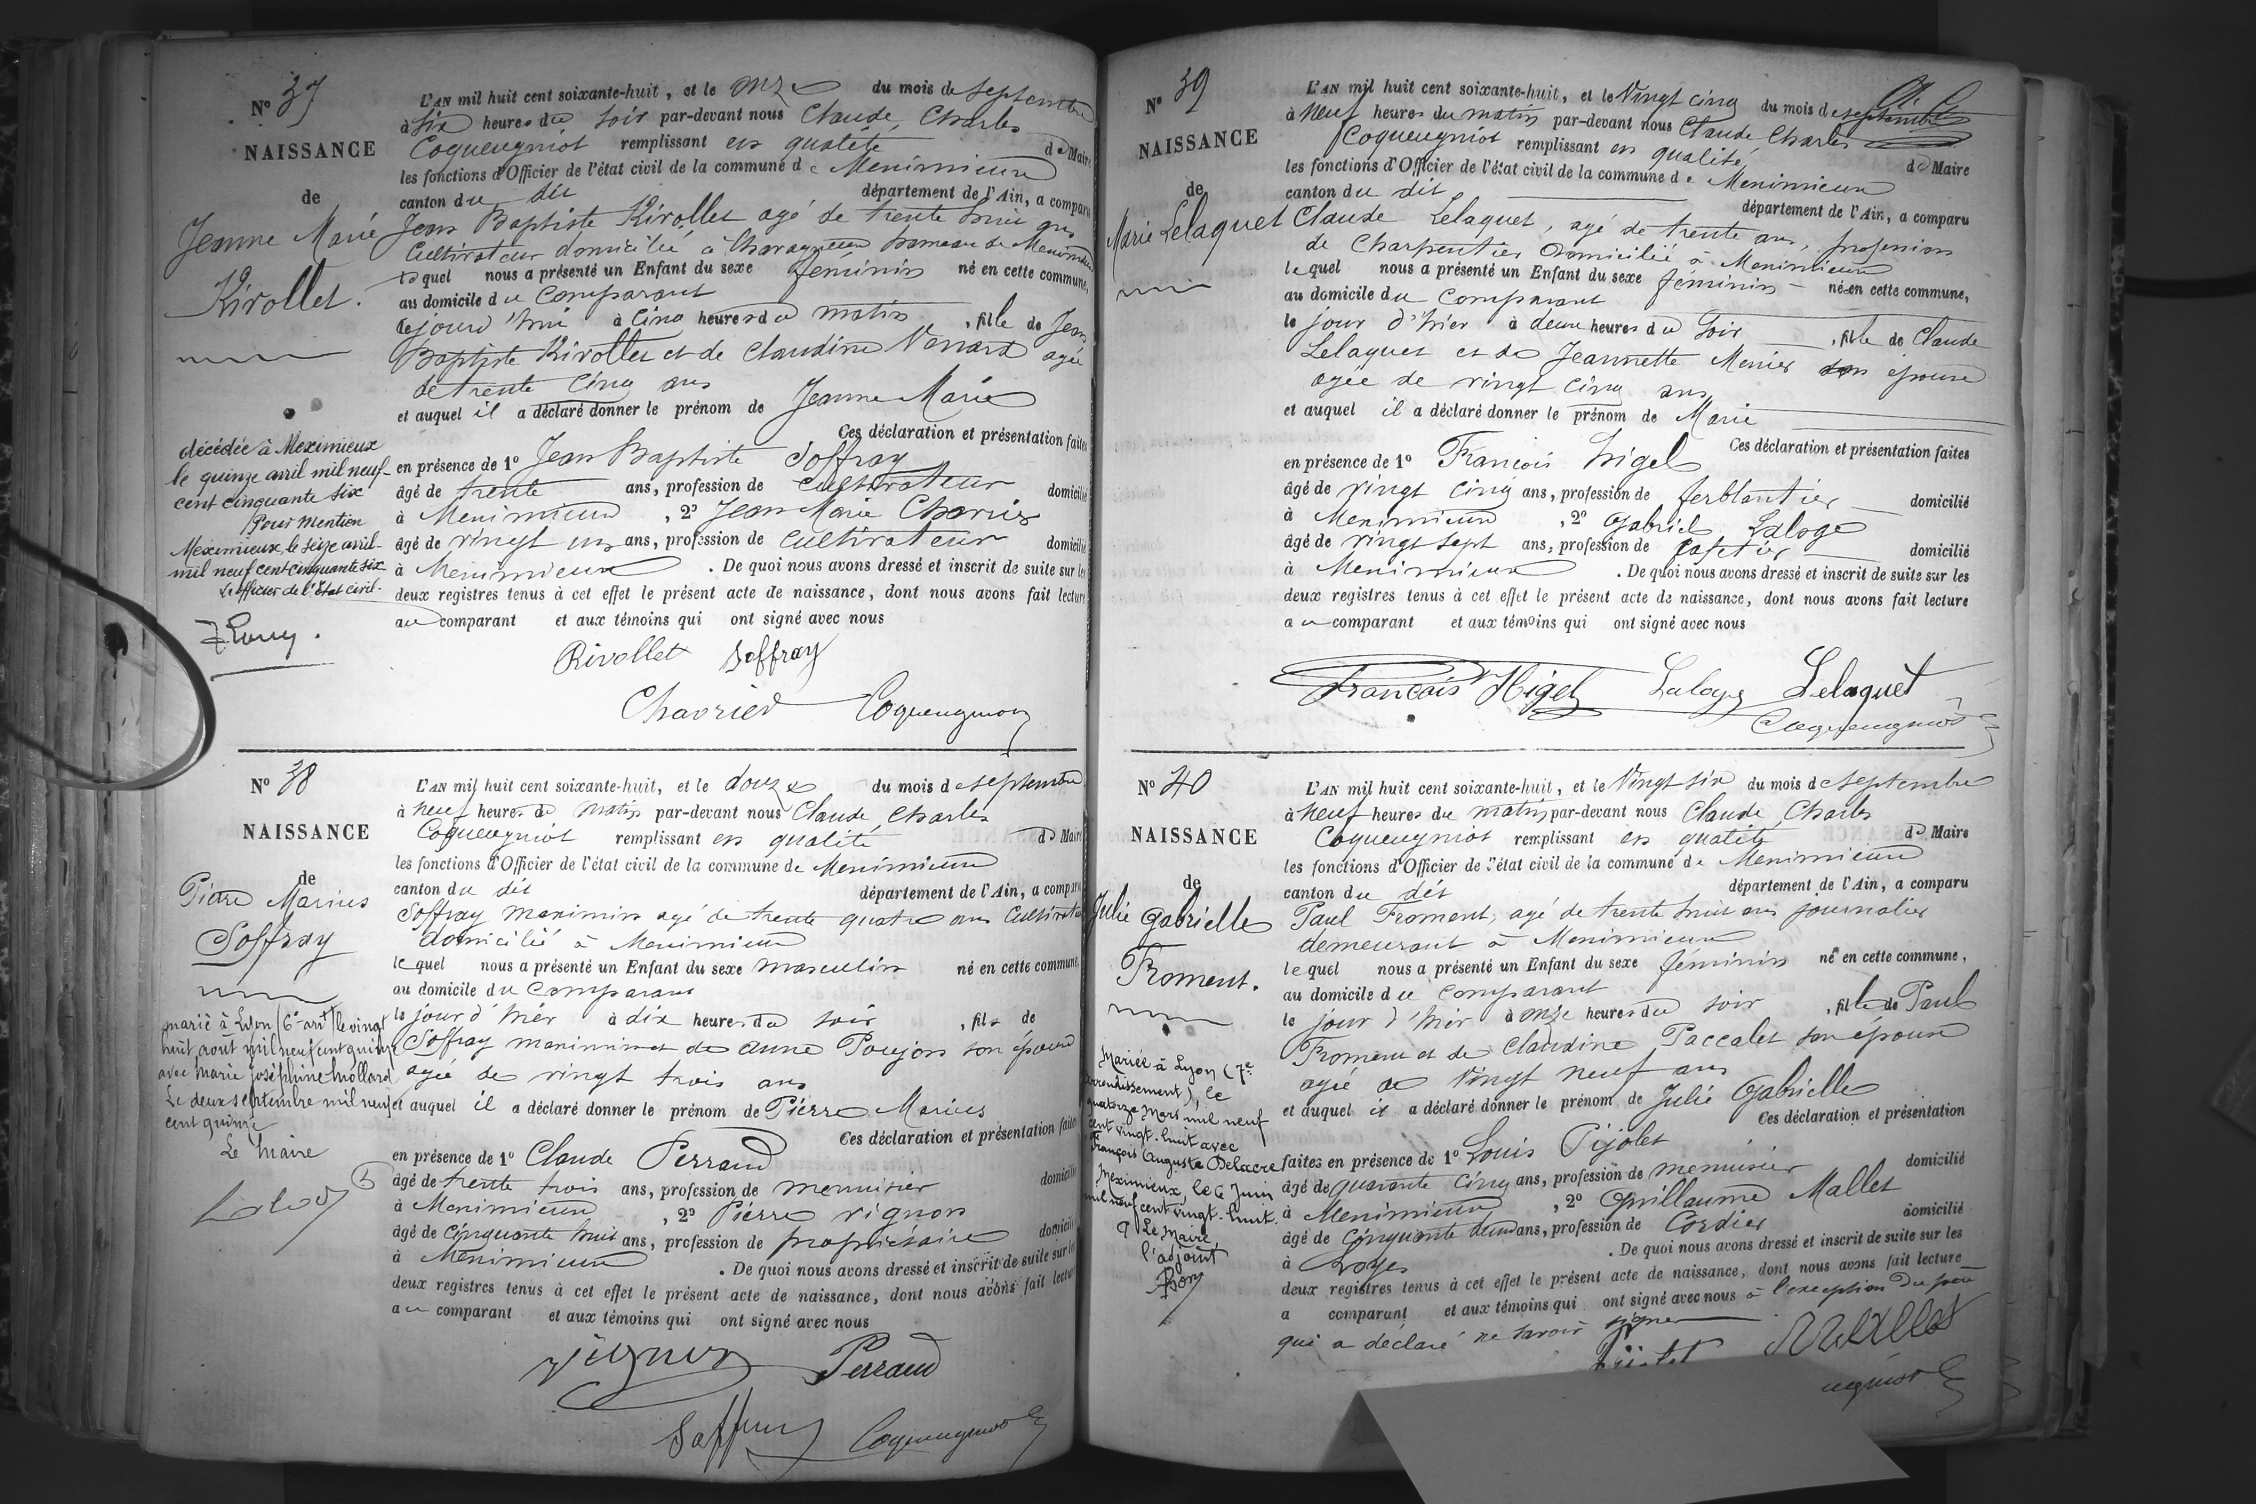 N° 37
NAISSANCE
de
Jeanne Marie
Rivollet.
décédée à Meximieux
le quinze avril mil neuf
cent cinquante six
Pour mention
Meximieux, le seize avril
mil neuf cent cinquante six
L'officier de l'État civil.
L'AN mil huit cent soixante-huit, et le onze du mois de septembre
à six heures du soir par-devant nous Claude Charles
Coqueugniot remplissant en qualité de Maire
les fonctions d'Officier de l'état civil de la commune de Meximieux
canton du dit département de l'Ain, a comparu
Jean Baptiste Rivollet agé de trente huit ans
Cultivateur domicilié à hameau de Meximieux
lequel nous a présenté un Enfant du sexe féminin né en cette commune,
au domicile du comparant
ce jourd'hui à cinq heures du matin, fille de Jean
Baptiste Rivollet et de Claudine Venard agée
de trente cinq ans
et auquel il a déclaré donner le prénom de Jeanne Marie
Ces déclaration et présentation faites
en présence de 1° Jean Baptiste Soffray
âgé de trente ans, profession de cultivateur domicilié
à Meximieux, 2° Jean Marie Charrier
âgé de vingt un ans, profession de cultivateur domicilié
à Meximieux. De quoi nous avons dressé et inscrit de suite sur les
deux registres tenus à cet effet le présent acte de naissance, dont nous avons fait lecture
au comparant et aux témoins qui ont signé avec nous
Rivollet Soffray
Charrier Coqueugniot
N° 38
NAISSANCE
de
Pierre Marius
Soffray
marié à Lyon (6e arrt) le vingt
huit août mil neuf cent quinze
avec Marie Joséphine Mollard
Le deux septembre mil neuf
cent quinze
Le Maire
L'AN mil huit cent soixante-huit, et le douze du mois de septembre
à neuf heures du matin par-devant nous Claude Charles
Coqueugniot remplissant en qualité de Maire
les fonctions d'Officier de l'état civil de la commune de Meximieux
canton du dit département de l'Ain, a comparu
Soffray Maximin agé de trente quatre ans Cultivateur
domicilié à Meximieux
lequel nous a présenté un Enfant du sexe masculin né en cette commune,
au domicile du comparant
le jour d'hier à dix heures du soir, fils de
Soffray Maximin et de Anne Poujon son épouse
agée de vingt trois ans
et auquel il a déclaré donner le prénom de Pierre Marius
Ces déclaration et présentation faites
en présence de 1° Claude Perraud
âgé de trente trois ans, profession de menuisier domicilié
à Meximieux, 2° Pierre Vignon
âgé de cinquante huit ans, profession de propriétaire domicilié
à Meximieux. De quoi nous avons dressé et inscrit de suite sur les
deux registres tenus à cet effet le présent acte de naissance, dont nous avons fait lecture
au comparant et aux témoins qui ont signé avec nous
Vignon Perraud
Soffray Coqueugniot
N° 39
NAISSANCE
de
Marie Lelaquet
L'AN mil huit cent soixante-huit, et le vingt cinq du mois de septembre
à neuf heures du matin par-devant nous Claude Charles
Coqueugniot remplissant en qualité de Maire
les fonctions d'Officier de l'état civil de la commune de Meximieux
canton du dit département de l'Ain, a comparu
Claude Lelaquet, agé de trente ans, profession
de Charpentier domicilié à Meximieux
lequel nous a présenté un Enfant du sexe féminin né en cette commune,
au domicile du comparant
le jour d'hier à deux heures du soir, fille de Claude
Lelaquet et de Jeannette Menier son épouse
agée de vingt cinq ans
et auquel il a déclaré donner le prénom de Marie
Ces déclaration et présentation faites
en présence de 1° François Higel
âgé de vingt cinq ans, profession de ferblantier domicilié
à Meximieux, 2° Gabriel Laloge
âgé de vingt sept ans, profession de cafetier domicilié
à Meximieux. De quoi nous avons dressé et inscrit de suite sur les
deux registres tenus à cet effet le présent acte de naissance, dont nous avons fait lecture
au comparant et aux témoins qui ont signé avec nous
François Higel Laloge Lelaquet
Coqueugniot
N° 40
NAISSANCE
de
Julie Gabrielle
Froment.
Mariée à Lyon (7e
arrondissement), le
quatorze Mars mil neuf
cent vingt-huit avec
François Auguste Delacre
Meximieux, le 6 Juin
mil neuf cent vingt-huit.
Le Maire,
l'adjoint
L'AN mil huit cent soixante-huit, et le vingt six du mois de septembre
à neuf heures du matin par-devant nous Claude Charles
Coqueugniot remplissant en qualité de Maire
les fonctions d'Officier de l'état civil de la commune de Meximieux
canton du dit département de l'Ain, a comparu
Paul Froment, agé de trente huit ans journalier
demeurant à Meximieux
lequel nous a présenté un Enfant du sexe féminin né en cette commune,
au domicile du comparant
le jour d'hier à onze heures du soir, fille de Paul
Froment et de Claudine Paccalet son épouse
agée de vingt neuf ans
et auquel il a déclaré donner le prénom de Julie Gabrielle
Ces déclaration et présentation
faites en présence de 1° Louis Pijolet
âgé de quarante cinq ans, profession de menuisier domicilié
à Meximieux, 2° Guillaume Mallet
âgé de cinquante deux ans, profession de Cordier domicilié
à Loyes. De quoi nous avons dressé et inscrit de suite sur les
deux registres tenus à cet effet le présent acte de naissance, dont nous avons fait lecture
a comparant et aux témoins qui ont signé avec nous à l'exception du père
qui a déclaré ne savoir signer